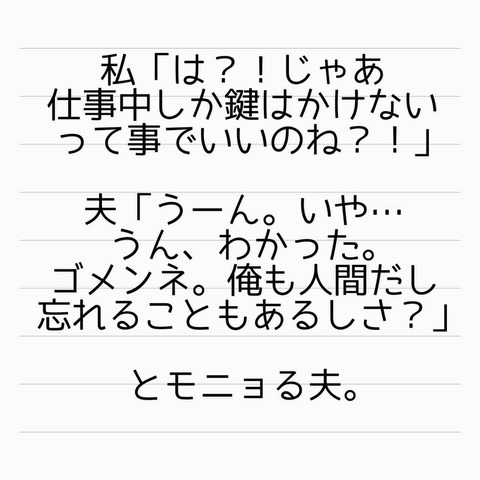 私「は？！じゃあ
仕事中しか鍵はかけない
って事でいいのね？！」
夫「うーん。いや…
うん、わかった。
ゴメンネ。俺も人間だし
忘れることもあるしさ？」
とモニョる夫。